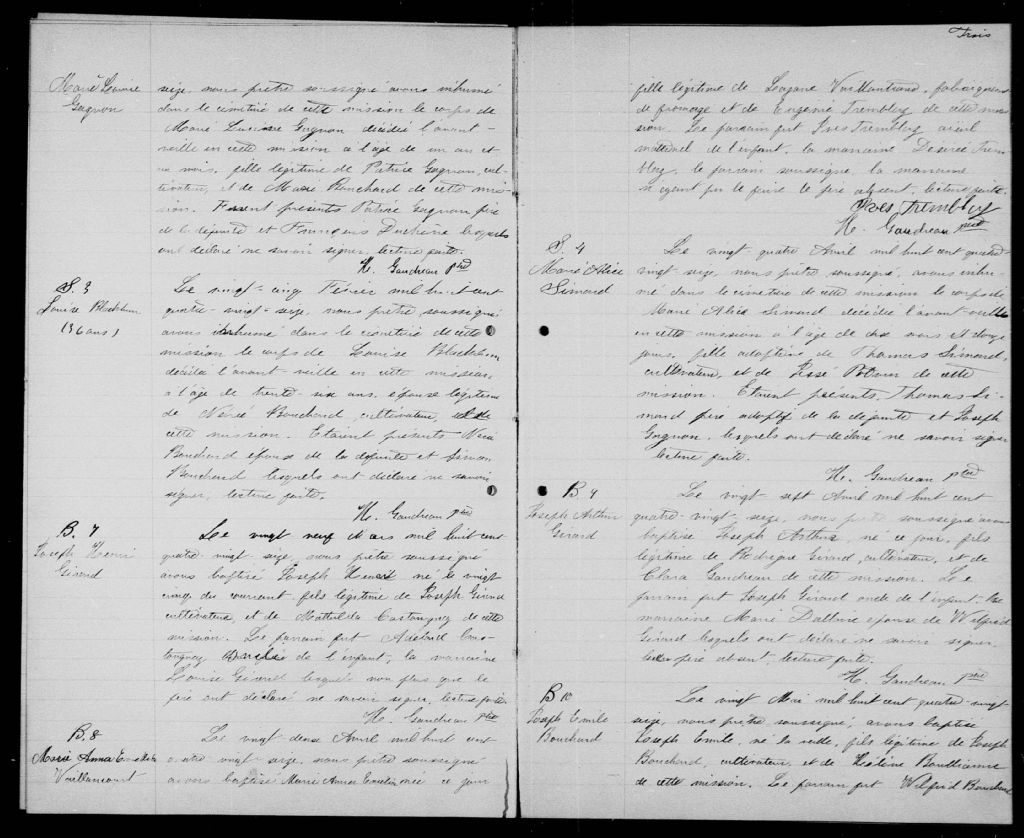 Marie Lucinie
Gagnon
seize, nous prêtre soussigné avons inhumé
dans le cimetière de cette mission le corps de
Marie Gagnon décédée l'avant-
veille en cette mission à l'âge de un an et
mois, fille légitime de Patrice Gagnon, cul-
tivateur, et de Marie Blanchard de cette mis-
sion. Furent présents Patrice Gagnon père
de la défunte et François Duchène lesquels
ont déclaré ne savoir signer, lecture faite.
H. Gaudreau ptre
S. 3
Louise Blackburn
(36 ans)
Le vingt-cinq Février mil huit cent
quatre-vingt-seize, nous prêtre soussigné
avons inhumé dans le cimetière de cette
mission le corps de Louise Blackburn
décédée l'avant-veille en cette mission,
à l'âge de trente-six ans, épouse légitime
de Nérée Bouchard, cultivateur, et de
cette mission. Etaient présents Nérée
Bouchard époux de la défunte et Simon
Bouchard lesquels ont déclaré ne savoir
signer, lecture faite.
H. Gaudreau ptre
B. 7
Joseph Henri
Girard
Le vingt neuf Mars mil huit cent
quatre-vingt-seize, nous prêtre soussigné
avons baptisé Joseph Henri né le vingt
cinq du courant, fils légitime de Joseph Girard
cultivateur, et de Mathilda Castonguay de cette
mission. Le parrain fut Cas-
tonguay de l'enfant, la marraine
Louise Girard lesquels non plus que le
père ont déclaré ne savoir signer, lecture faite
H. Gaudreau ptre
B. 8
Marie Anna
Vaillancourt
Le vingt-deux Avril mil huit cent
quatre vingt-seize, nous prêtre soussigné
avons baptisé Marie Anna née ce jour
Trois
fille légitime de Vaillancourt, fabriquant
de fromage et de Eugénie Tremblay de cette mis-
sion. Le parrain fut Yves Tremblay aïeul
maternel de l'enfant, la marraine Desirée Trem-
blay, le parrain soussigné, la marraine
n'ayant pu le faire le père absent, lecture faite.
Yves Tremblay
H. Gaudreau ptre
S. 4
Marie Alice
Simard
Le vingt quatre Avril mil huit cent quatre-
vingt-seize, nous prêtre soussigné, avons inhu-
mé dans le cimetière de cette mission le corps de
Marie Alice Simard décédée l'avant-veille
en cette mission à l'âge de dix ans et douze
jours, fille adoptive de Thomas Simard,
cultivateur, et de Potvin de cette
mission. Etaient présents, Thomas Si-
mard père adoptif de la défunte et Joseph
Gagnon, lesquels ont déclaré ne savoir signer
lecture faite.
H. Gaudreau ptre
B 9
Joseph Arthur
Girard
Le vingt-sept Avril mil huit cent
quatre-vingt-seize, nous prêtre soussigné avons
baptisé Joseph Arthur, né ce jour, fils
légitime de Rodrigue Girard, cultivateur, et de
Clara Gaudreau de cette mission. Le
parrain fut Joseph Girard oncle de l'enfant. La
marraine Marie Dallaire épouse de Wilfrid
Girard lesquels ont déclaré ne savoir signer
le père absent, lecture faite.
H. Gaudreau ptre
B 10
Joseph Emile
Bouchard
Le vingt Mai mil huit cent quatre-vingt
seize, nous prêtre soussigné, avons baptisé
Joseph Emile, né la veille, fils légitime de Joseph
Bouchard, cultivateur, et de
de cette mission. Le parrain fut Wilfrid Bouchard